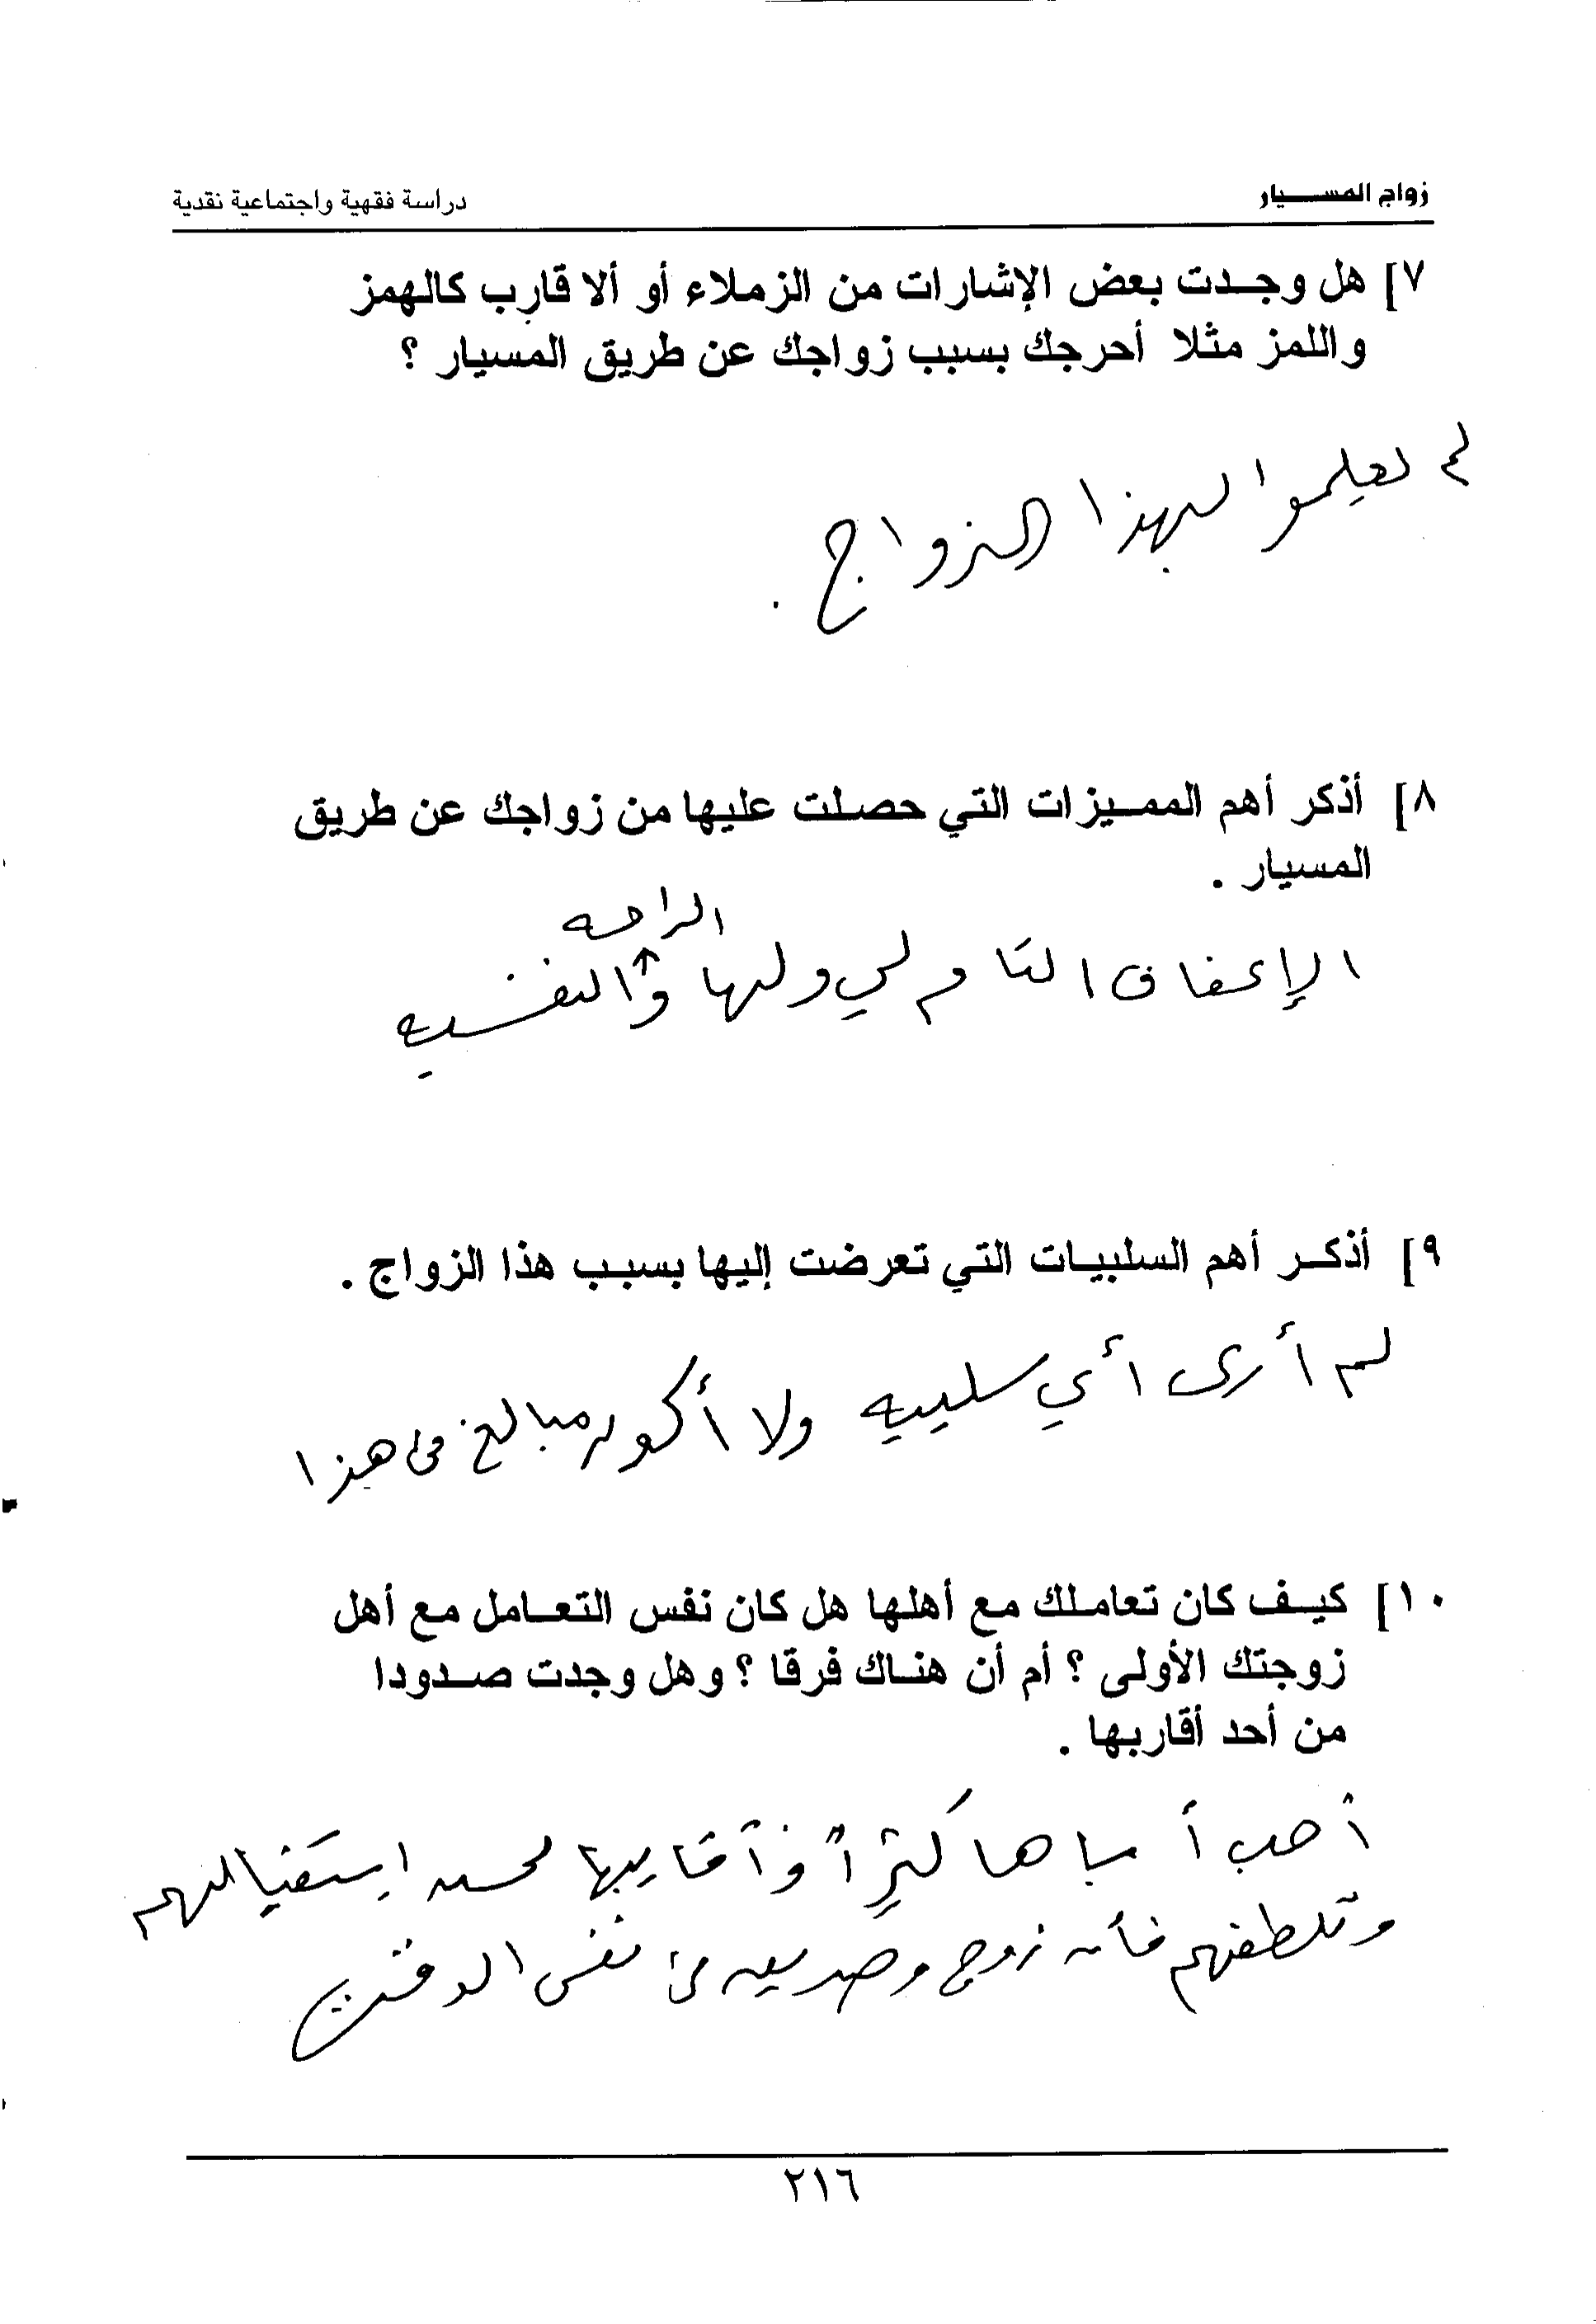 زواج المسيار
دراسة فقهية واجتماعية نقدية
٧] هل وجدت بعض الإشارات من الزملاء أو ألا قارب كالهمز
واللمز مثلا أحرجك بسبب زواجك عن طريق المسيار ؟
لم يعلموا بهذا الزواج .
٨] أذكر أهم المميزات التي حصلت عليها من زواجك عن طريق
المسيار .
الراحه
الإعفاف التام لي ولها و النفسيه
٩] أذكر أهم السلبيات التي تعرضت إليها بسبب هذا الزواج .
لم أرى أي سلبيه ولا أكون مبالغ في هذا
١٠] كيف كان تعاملك مع أهلها هل كان نفس التعامل مع أهل
زوجتك الأولى ؟ أم أن هناك فرقا ؟ وهل وجدت صدودا
من أحد أقاربها .
أحب أباها كثيراً وأقاربها لحسن استقبالهم
وتلطفهم فأنا زوج وصديق في نفس الوقت
٢١٦